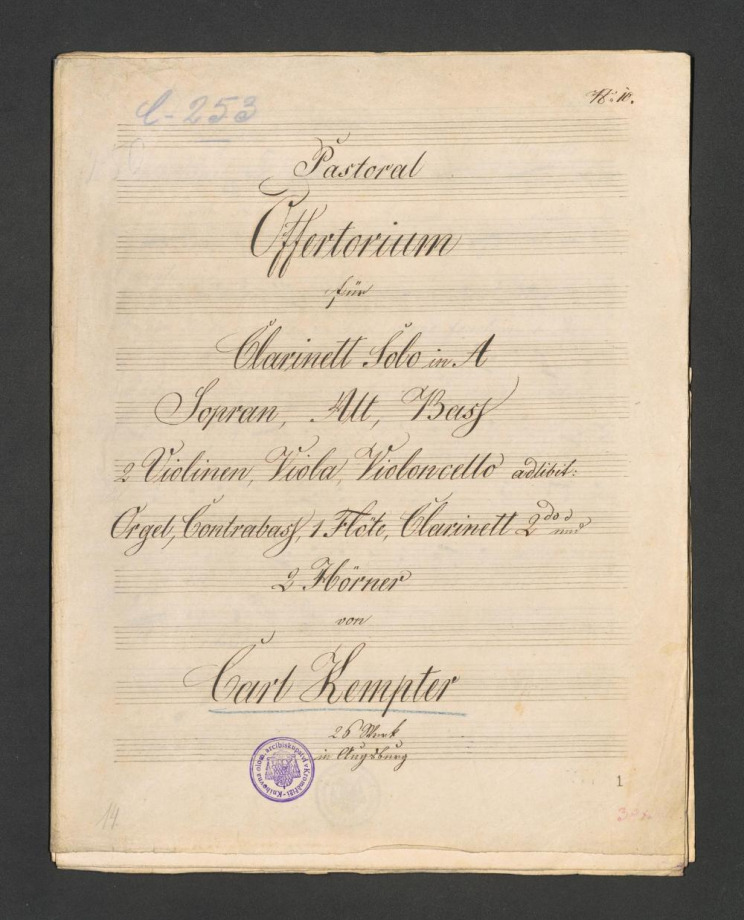 C-253
Nº: 10.
Pastoral
Offertorium
für
Clarinett Solo in A
Sopran, Alt, Bass
2 Violinen, Viola, Violoncello adlibit:
Orgel, Contrabass, 1 Flöte, Clarinett 2do und
2 Hörner
von
Carl Kempter
26 Werk
in Augsburg
Knihovna olom. arcibiskupství v Kroměříži
1
14